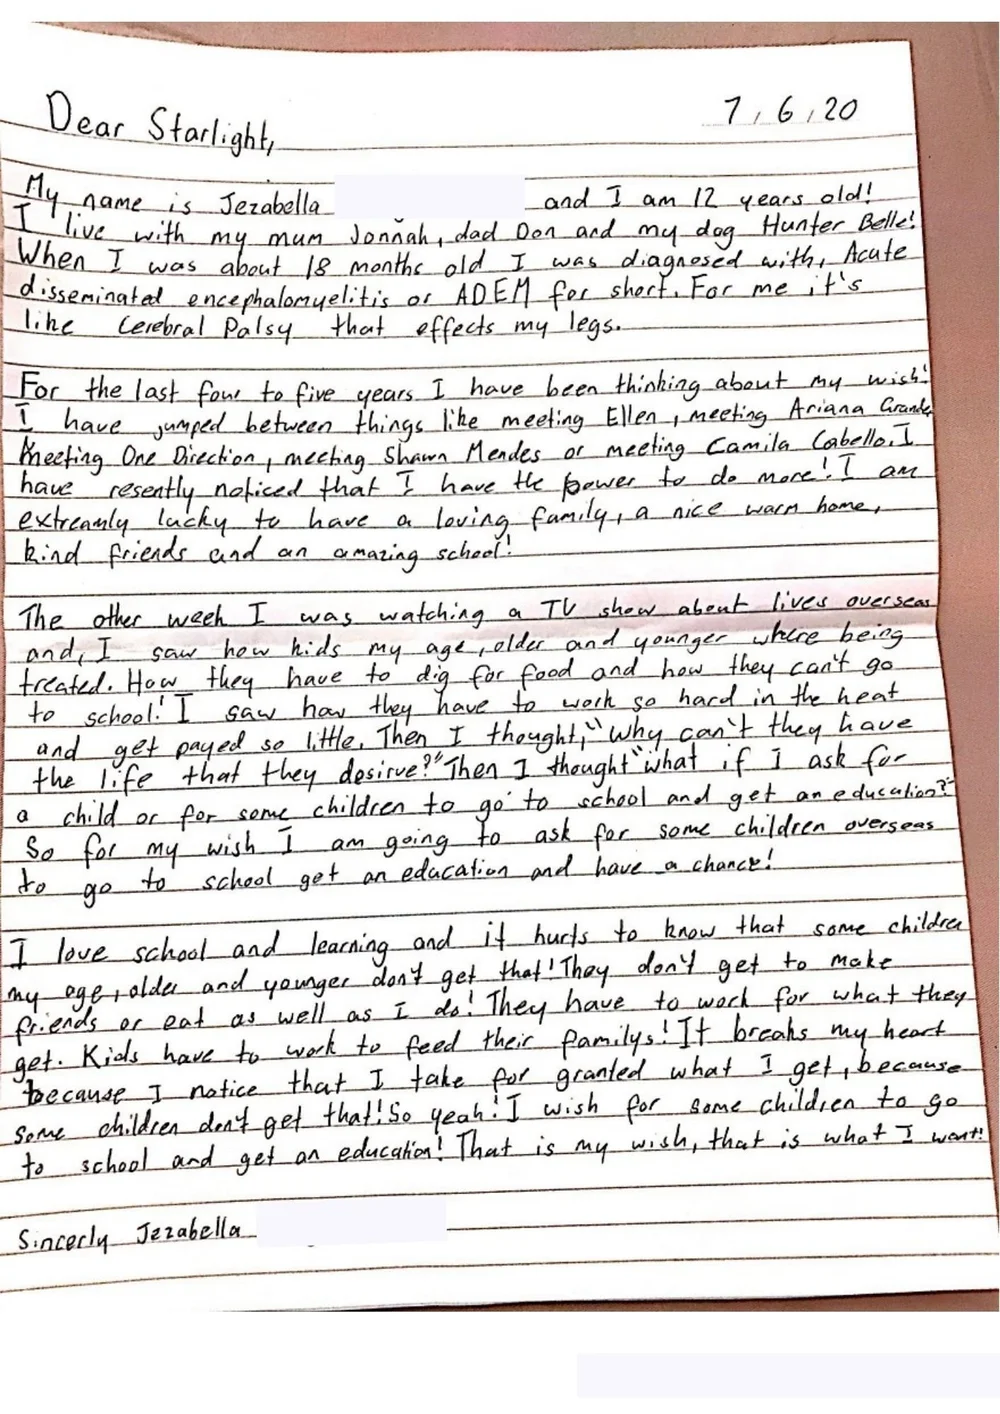 7/6/20
Dear Starlight,
My name is Jezabella and I am 12 years old!
I live with my mum Jonnah, dad Don and my dog Hunter Belle!
When I was about 18 months old I was diagnosed with, Acute
disseminated encephalomyelitis or ADEM for short. For me it's
like Cerebral Palsy that effects my legs.
For the last four to five years I have been thinking about my wish!
I have jumped between things like meeting Ellen, meeting Ariana Grande,
Meeting One Direction, meeting Shawn Mendes or meeting Camila Cabello. I
have resently noticed that I have the power to do more! I am
extreamly lucky to have a loving family, a nice warm home,
kind friends and an amazing school!
The other week I was watching a TV show about lives overseas
and, I saw how kids my age, older and younger where being
treated. How they have to dig for food and how they can't go
to school! I saw how they have to work so hard in the heat
and get payed so little. Then I thought, "Why can't they have
the life that they desirve?" Then I thought "what if I ask for
a child or for some children to go to school and get an education?"
So for my wish I am going to ask for some children overseas
to go to school get an education and have a chance!
I love school and learning and it hurts to know that some children
my age, older and younger don't get that! They don't get to make
friends or eat as well as I do! They have to work for what they
get. Kids have to work to feed their familys! It breaks my heart
because I notice that I take for granted what I get, because
some children don't get that! So yeah! I wish for some children to go
to school and get an education! That is my wish, that is what I want!
Sincerly Jezabella